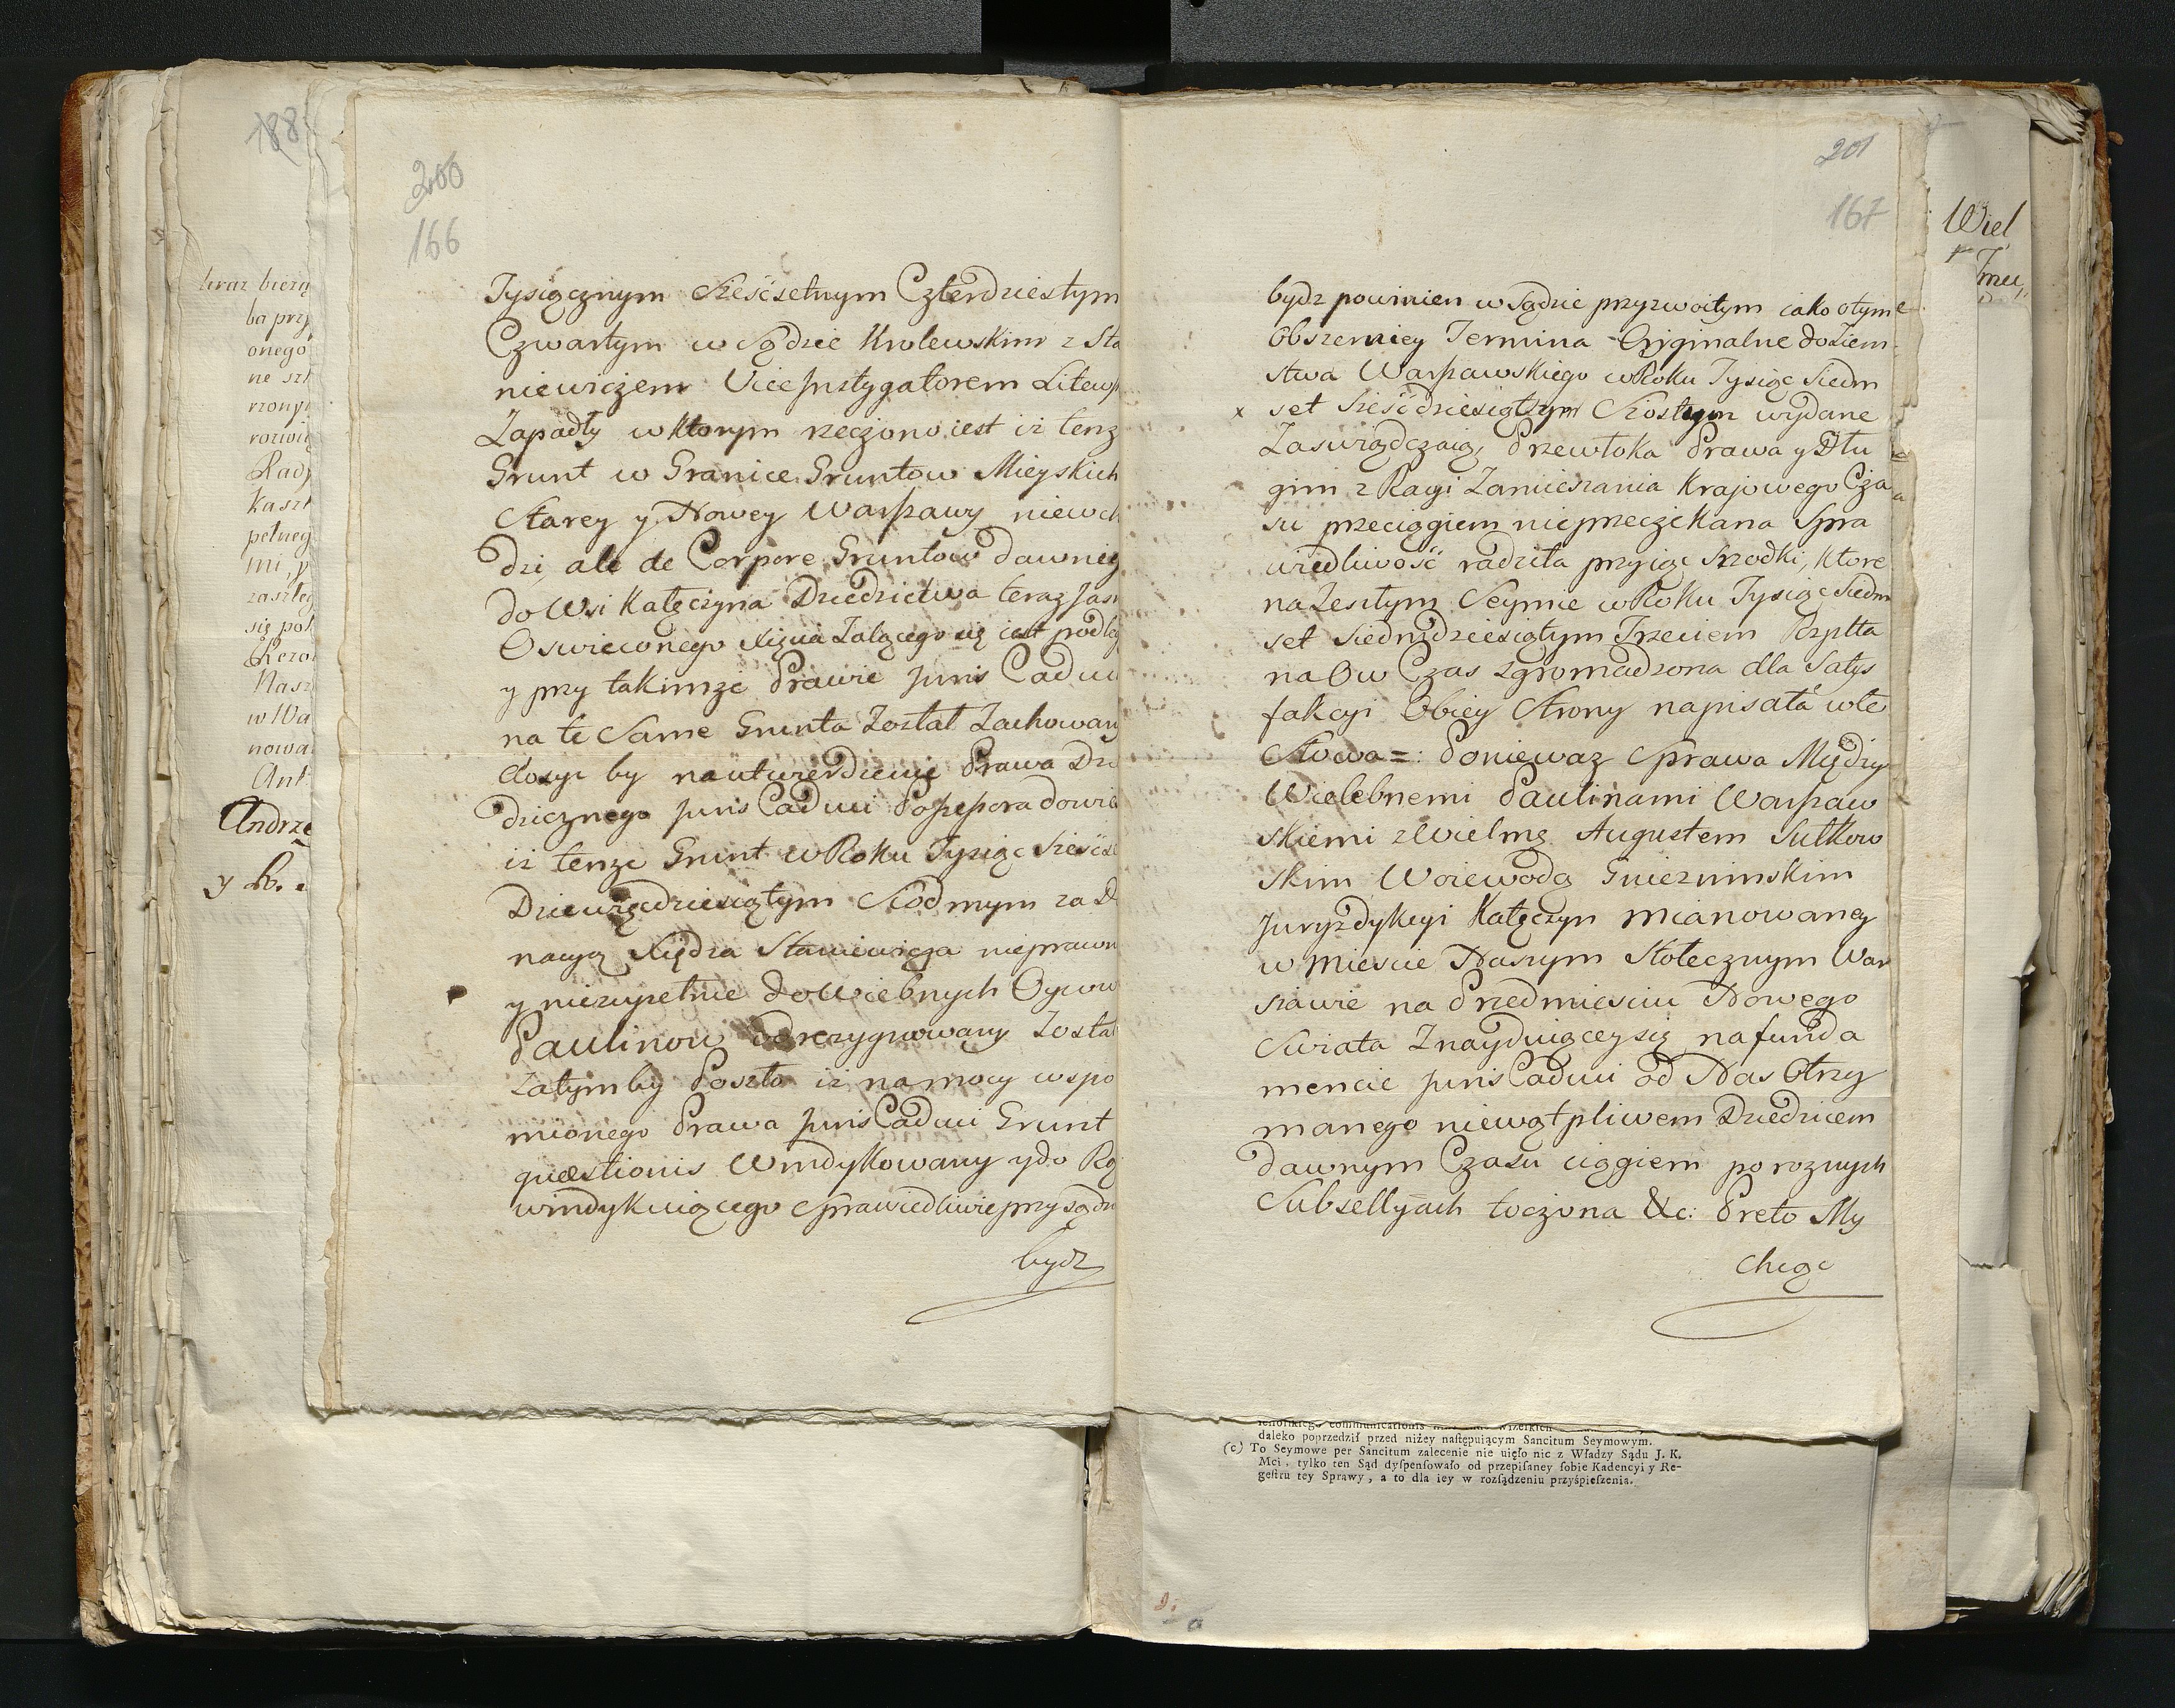 188
teraz bieżą
ba prz
onego
ne szt
rzony
rozwią
Rad
Kaszt
pełneg
mi, y
zaszłeg
się pok
Rezo
Nasz
w Wa
nowa
Ant
Andrze
y b.
200
166
Tysiącznym Sześćsetnym Czterdziestym
Czwartym w Sądzie Krolewskim z Sta
niewiczem Vice Instygatorem Litews
Zapadły w ktorym rzeczono iest iż tenz
Grunt w Granice Gruntow Mieyskich
Starey y Nowey Warszawy niewch
dzi, ale de Corpore Gruntow dawniey
do Wsi Kałęczyna Dziedzictwa teraz Jasn
Oswieconego Xięcia Zalącego się iest podleg
y przy takimze Prawie Juris Caduci
na te Same Grunta Został Zachowany
dosyc by na utwierdzenie Prawa Dzie
dzicznego juris Caduci Possessora dowie
iż tenze Grunt w Roku Tysiąc Sześćse
Dziewięcdziesiątym Siodmym za D
nacyą Xiędza Staniewicza nieprawn
y niezupełnie do Wielebnych Oycow
Paulinow rezygnowany Zosta
Zatym by Poszło iż na mocy wspo
mionego Prawa Juris Caduci Grunt
quæstionis Windykowany y do Rą
windykuiącego Sprawiedliwie przysądzo
bydz
201
167
bydz powinien w Sądzie przyzwoitym iako o tym
Obszerniey Termina Oryginalne do Ziem
stwa Warszawskiego w Roku Tysiąc Siedm
x set Sześćdziesiątym Szostym wydane
Zaswiadczaią, Przewłoka Prawa y Dłu
gim z Racyi Zamieszania Krajowego Cza
su przeciągiem nieprzeczekana Spra
wiedliwość radziła przyiąc srzodki, ktore
na Zeszłym Seymie w Roku Tysiąc Siedm
set Siedmdziesiątym Trzeciem Rzpltta
na Ow Czas zgromadzona dla Satys
fakcyi Obiey Strony napisała w te
Słowa =: Poniewaz Sprawa Między
Wielebnemi Paulinami Warszaw
skiemi z Wielmą Augustem Sułkow
skim Woiewodą Gniezninskim
Juryzdykcyi Kałęczyn mianowaney
w Miescie Naszym Stołecznym War
szawie na Przedmiesciu Nowego
Swiata Znayduiącey się na funda
mencie Juris Caduci od Nas Otrzy
manego niewątpliwem Dziedzicem
dawnym Czasu ciągiem po roznych
Subsellyach toczona &c: Preto My
chcąc
Wiel
daleko poprzedził przed niżey naſtępuiącym Sancitum Seymowym.
(c) To Seymowe per Sancitum zalecenie nie uięło nic z Władzy Sądu J. K.
Mci, tylko ten Sąd dyſpenſowało od przepiſaney ſobie Kadencyi y Re-
geſtru tey Sprawy, a to dla iey w rozſądzeniu przyśpieſzenia.